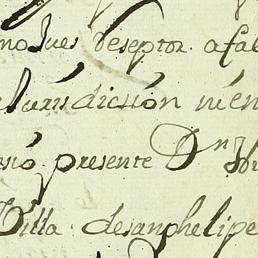 mo Jues Reseptor afal
Jurisdiction ni en
presente Dn
Villa desanphelipe